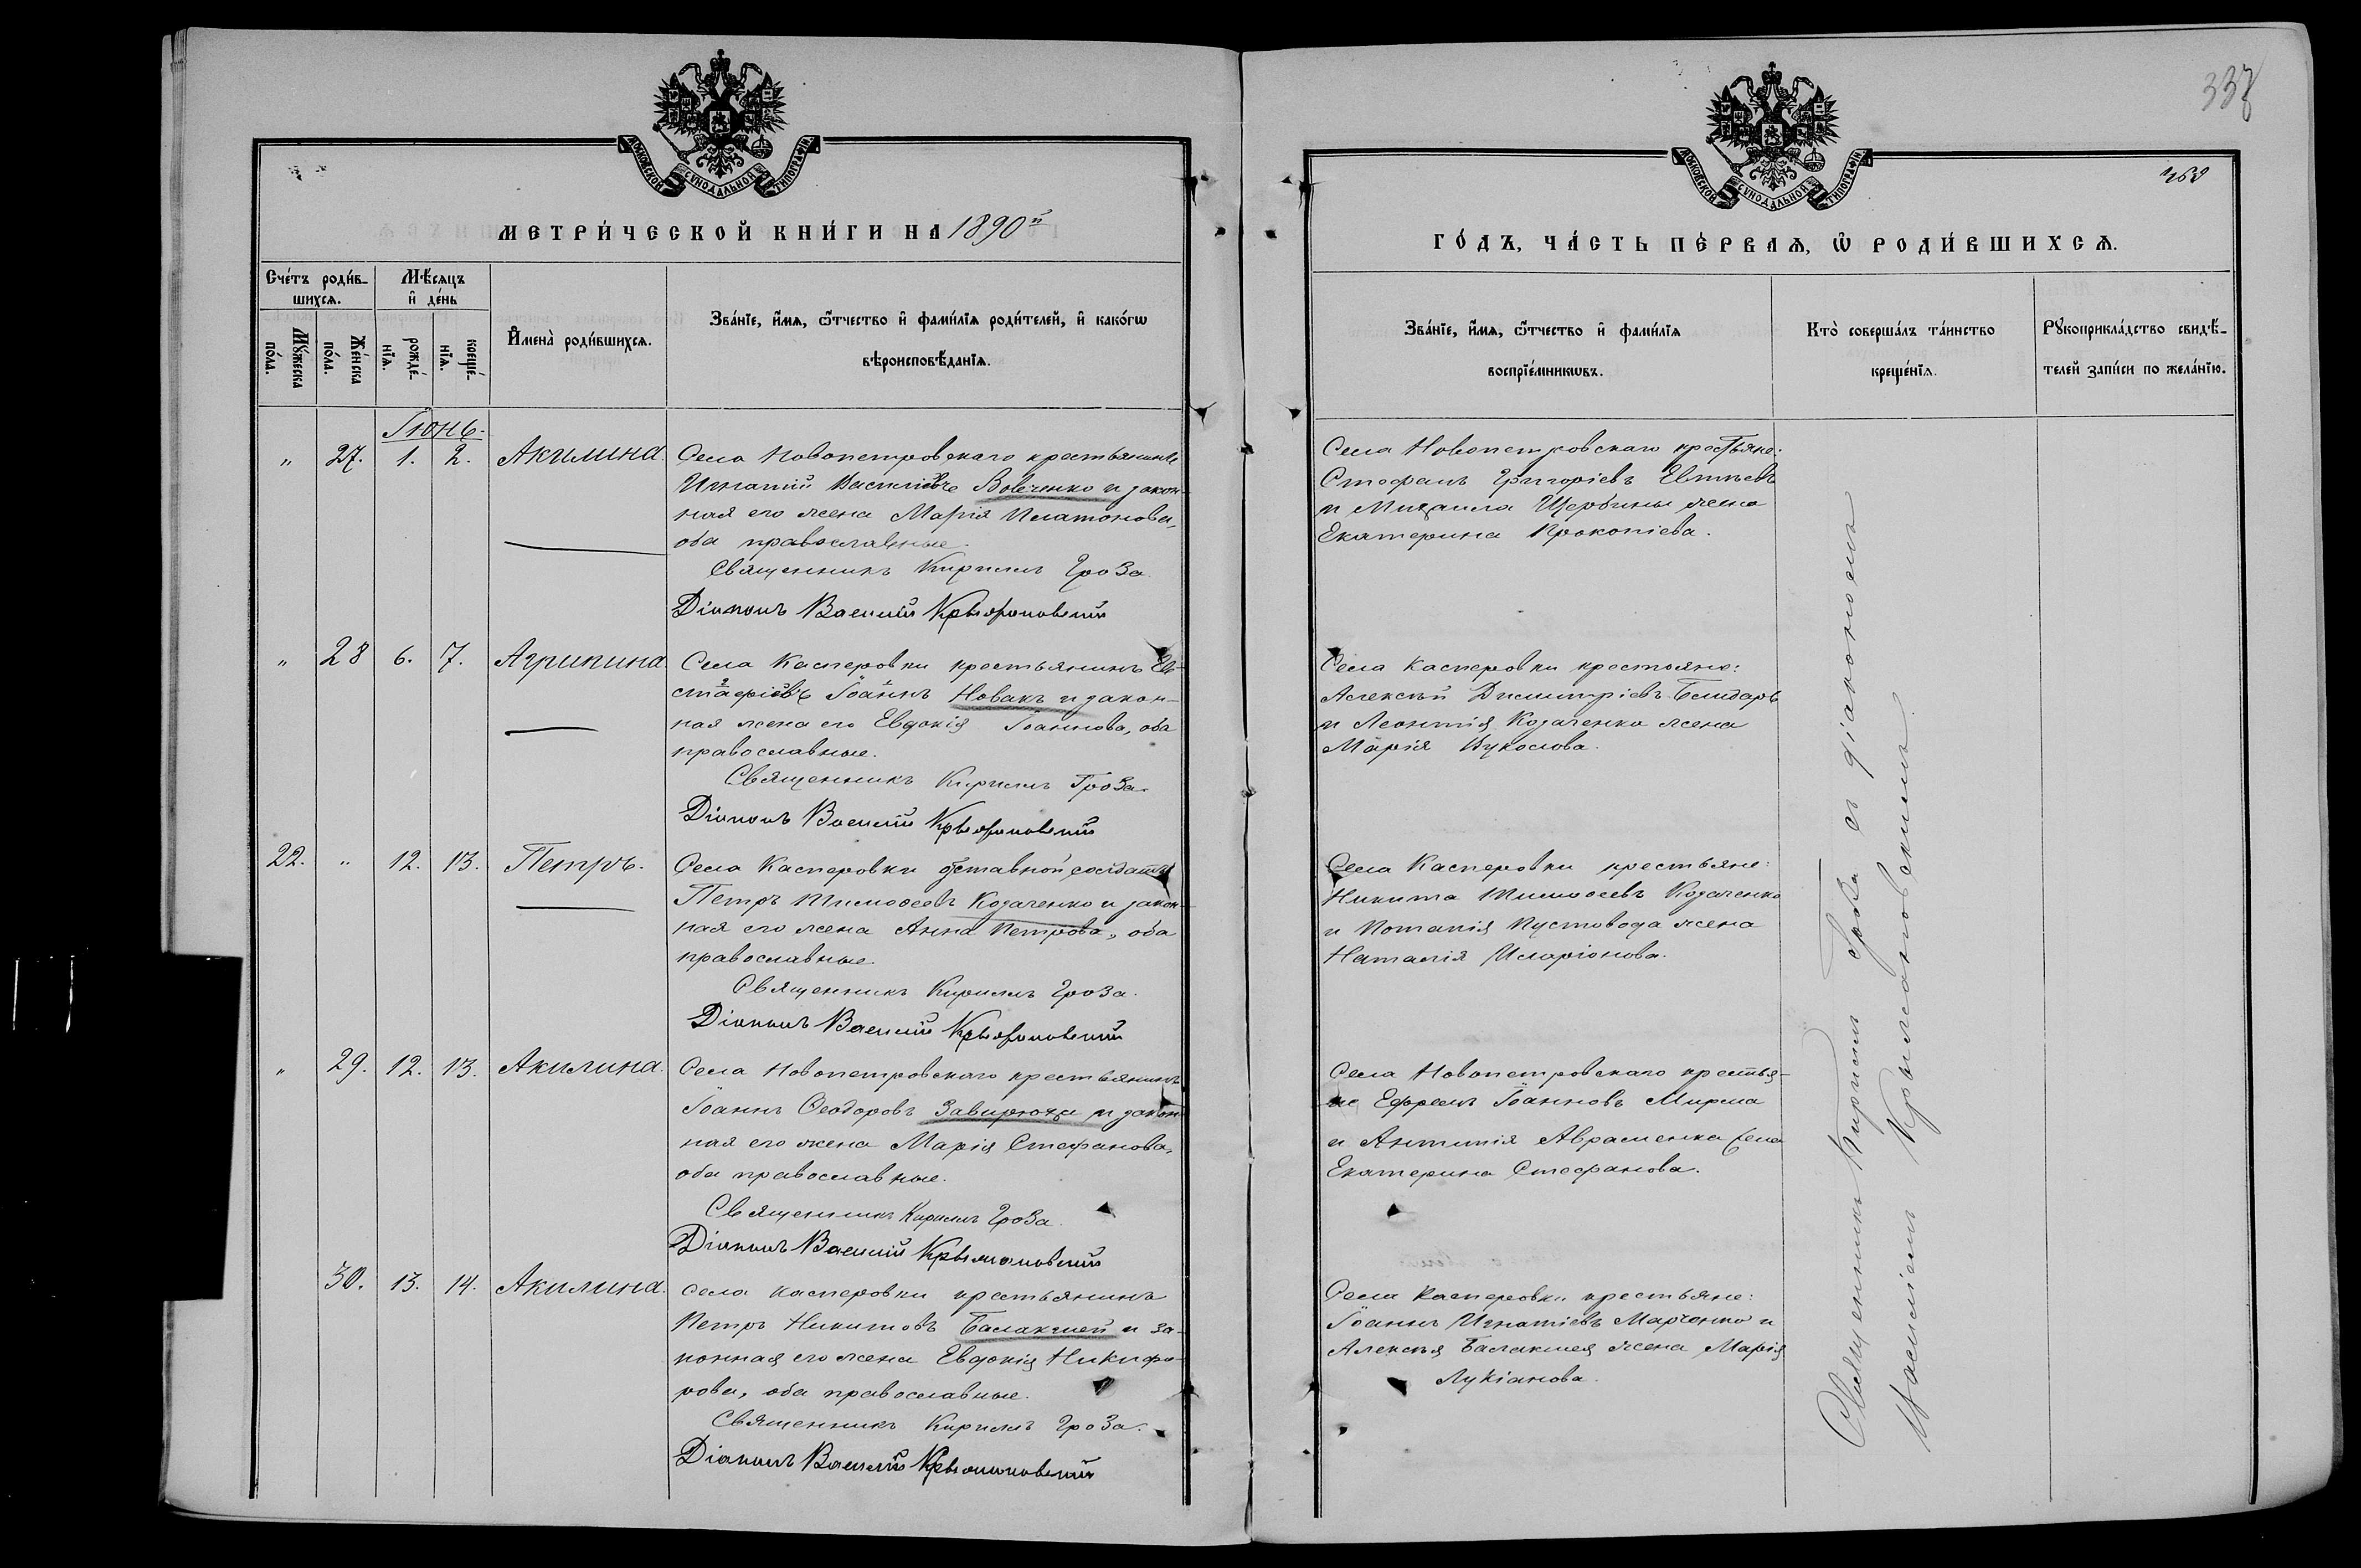 338
МОСКОВСКОЙ СѴНОДАЛЬНОЙ ТИПОГРАФІИ
МЕТРИ́ЧЕСКОЙ КНИ́ГИ НА 1890й
Сче́тъ роди́в-
шихсѧ.
Мꙋ́жеска
по́ла.
Же́нска
по́ла.
Мѣ́сѧцъ
и҆ де́нь
рожде́-
нїѧ.
креще́-
нїѧ.
И҆мена̀ роди́вшихсѧ.
Зва́нїе, и҆́мѧ, ѻ҆́тчество и҆ фами́лїѧ роди́телей, и҆ како́гѡ
вѣроисповѣ́данїѧ.
Іюнь.
" 27. 1. 2. Акилина.
Села Новопетровскаго крестьянинъ
Игнатій Васильевъ Вовченко и закон-
ная его жена Марія Платонова,
оба православные.
Священникъ Кириллъ Гроза.
Діаконъ Василій Крыжановскій
" 28 6. 7. Агрипина.
Села Касперовки крестьянинъ Ев-
стафіевъ Іоаннъ Новакъ и закон-
ная жена его Евдокія Іоаннова, оба
православные.
Священникъ Кириллъ Гроза.
Діаконъ Василій Крыжановскій
22. " 12. 13. Петръ.
Села Касперовки отставной солдатъ
Петръ Тимофеевъ Козаченко и закон-
ная его жена Анна Петрова, оба
православные.
Священникъ Кириллъ Гроза.
Діаконъ Василій Крыжановскій
" 29. 12. 13. Акилина.
Села Новопетровскаго крестьянинъ
Іоаннъ Феодоровъ Завирюха и закон-
ная его жена Марія Стефанова,
оба православные.
Священникъ Кириллъ Гроза.
Діаконъ Василій Крыжановскій
30. 13. 14. Акилина.
Села Касперовки крестьянинъ
Петръ Никитовъ Балакшей и за-
конная его жена Евдокія Никифо-
рова, оба православные.
Священникъ Кириллъ Гроза.
Діаконъ Василій Крыжановскій
МОСКОВСКОЙ СѴНОДАЛЬНОЙ ТИПОГРАФІИ
ГО́ДЪ, ЧА́СТЬ ПЕ́РВАѦ, Ѡ҆ РОДИ́ВШИХСѦ.
Зва́нїе, и҆́мѧ, ѻ҆́тчество и҆ фами́лїѧ
воспрїе́мникѡвъ.
Кто̀ соверша́лъ та́инство
креще́нїѧ.
Рꙋкоприкла́дство свидѣ́-
телей за́писи по жела́нїю.
Села Новопетровскаго крестьяне:
Стефанъ Григоріевъ
и Михаила Щербины жена
Екатерина Прокопіева.
Села Касперовки крестьяне:
Алексѣй Димитріевъ Бондарь
и Леонтія Козаченка жена
Марія
Села Касперовки крестьяне:
Никита Тимофеевъ Козаченко
и Потапія Пустовода жена
Наталія Иларіонова.
Села Новопетровскаго крестья-
не Ефремъ Іоанновъ Мирша
и Антипія Авраменка жена
Екатерина Стефанова.
Села Касперовки крестьяне:
Іоаннъ Игнатіевъ Марченко и
Алексѣя Балакшея жена Марія
Лукіанова.
Священникъ Кириллъ Гроза съ діакономъ
Василіемъ Крыжановскимъ.